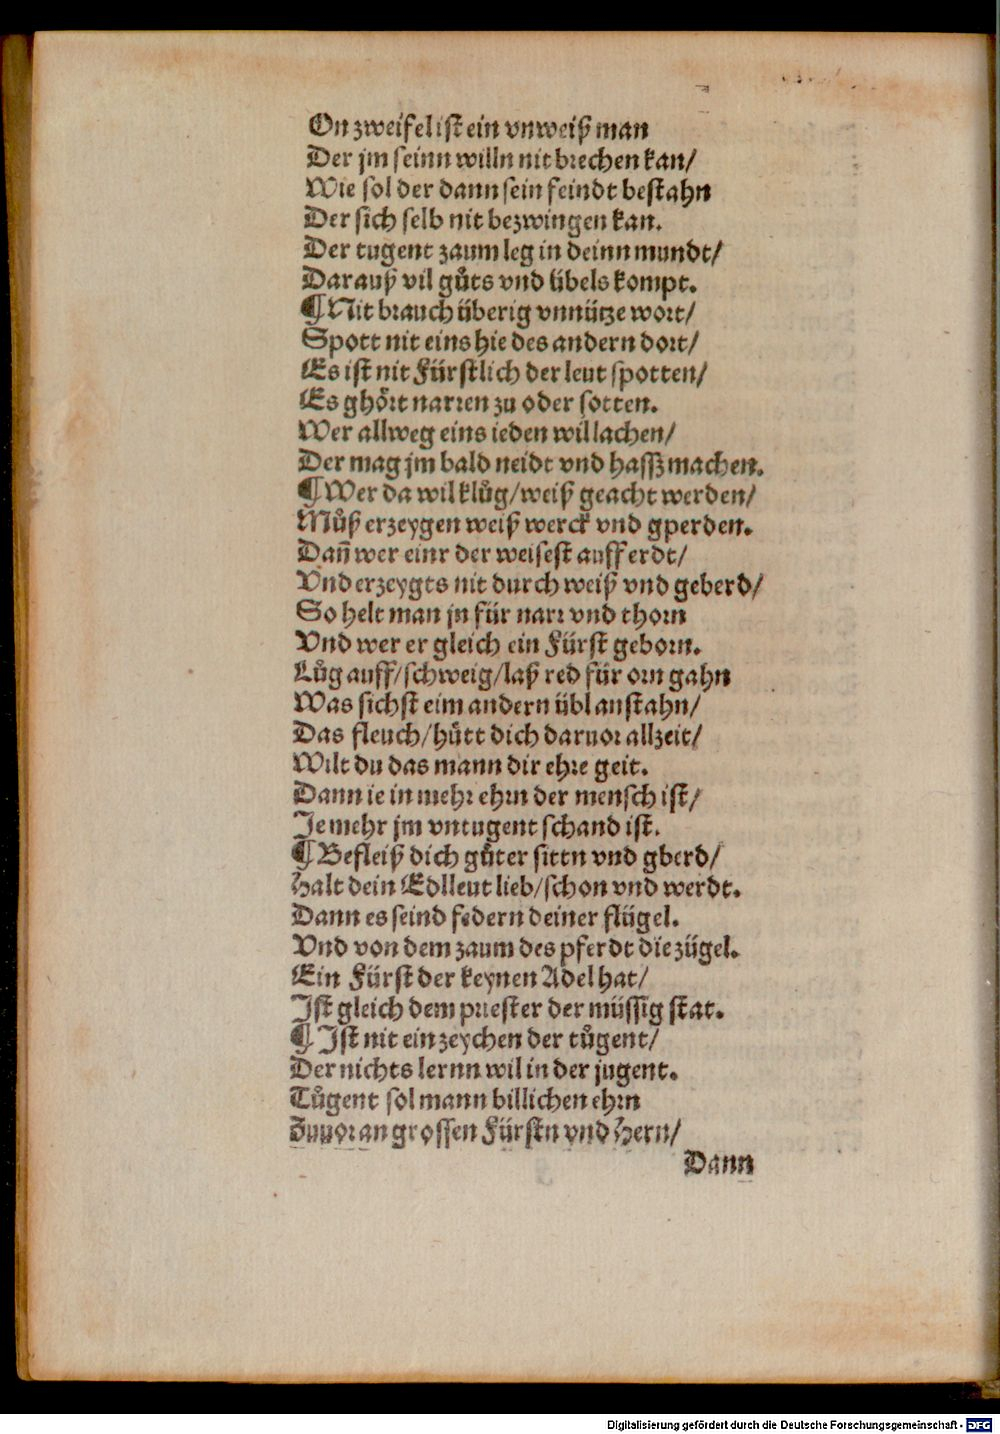 On zweifel ist ein vnweiß man
Der jm seinn willn nit brechen kan/
Wie sol der dann sein feindt bestahn
Der sich selb nit bezwingen kan.
Der tugent zaum leg in deinn mundt/
Darauß vil gůts vnd übels kompt.
¶ Nit brauch überig vnnütze wort/
Spott nit eins hie des andern dort/
Es ist nit Fürstlich der leut spotten/
Es ghört narren zu oder sotten.
Wer allweg eins ieden wil lachen/
Der mag jm bald neidt vnd hassz machen.
¶ Wer da wil klůg/weiß geacht werden/
Můß erzeygen weiß werck vnd gperden.
Dañ wer einr der weisest auff erdt/
Vnd erzeygts nit durch weiß vnd geberd/
So helt man jn für narr vnd thorn
Vnd wer er gleich ein Fürst geborn.
Lůg auff/schweig/laß red für orn gahn
Was sichst eim andern übl anstahn/
Das fleuch/hůtt dich daruor allzeit/
Wilt du das mann dir ehre geit.
Dann ie in mehr ehrn der mensch ist/
Je mehr jm vntugent schand ist.
¶ Befleiß dich gůter sittn vnd gberd/
Halt dein Edlleut lieb/schon vnd werdt.
Dann es seind federn deiner flügel.
Vnd von dem zaum des pferdt die zügel.
Ein Fürst der keynen Adel hat/
Ist gleich dem priester der müssig stat.
¶ Ist nit ein zeychen der tůgent/
Der nichts lernn wil in der jugent.
Tůgent sol mann billichen ehrn
Zuuor an grossen Fürstn vnd Hern/
Dann
Digitalisierung gefördert durch die Deutsche Forschungsgemeinschaft - DFG